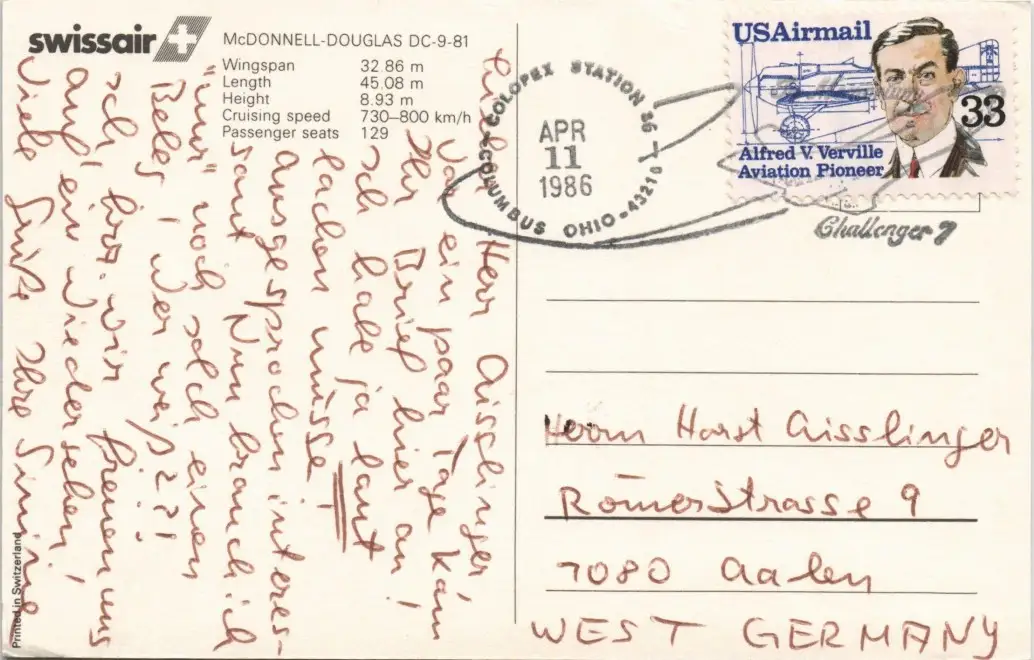 swissair
McDONNELL-DOUGLAS DC-9-81
Wingspan 32.86 m
Length 45.08 m
Height 8.93 m
Cruising speed 730–800 km/h
Passenger seats 129
Lieber Herr Aisslinger,
vor ein paar Tage kam
Ihr Brief hier an!
Ich habe ja laut
lachen müsse
ausgesprochen interes-
sant Nun brauch ich
"nur" noch solch einen
Beleg, wer weiß??!
Ich, bzw. wir freuen uns
auf ein Wiedersehen!
Viele Grüße Ihre
Printed in Switzerland
COLOPEX STATION 86 –
APR
11
1986
COLUMBUS OHIO - 43216
USAirmail
33
Alfred V. Verville
Aviation Pioneer
Challenger 7
Herrn Horst Aisslinger
Römerstrasse 9
7080 Aalen
WEST GERMANY